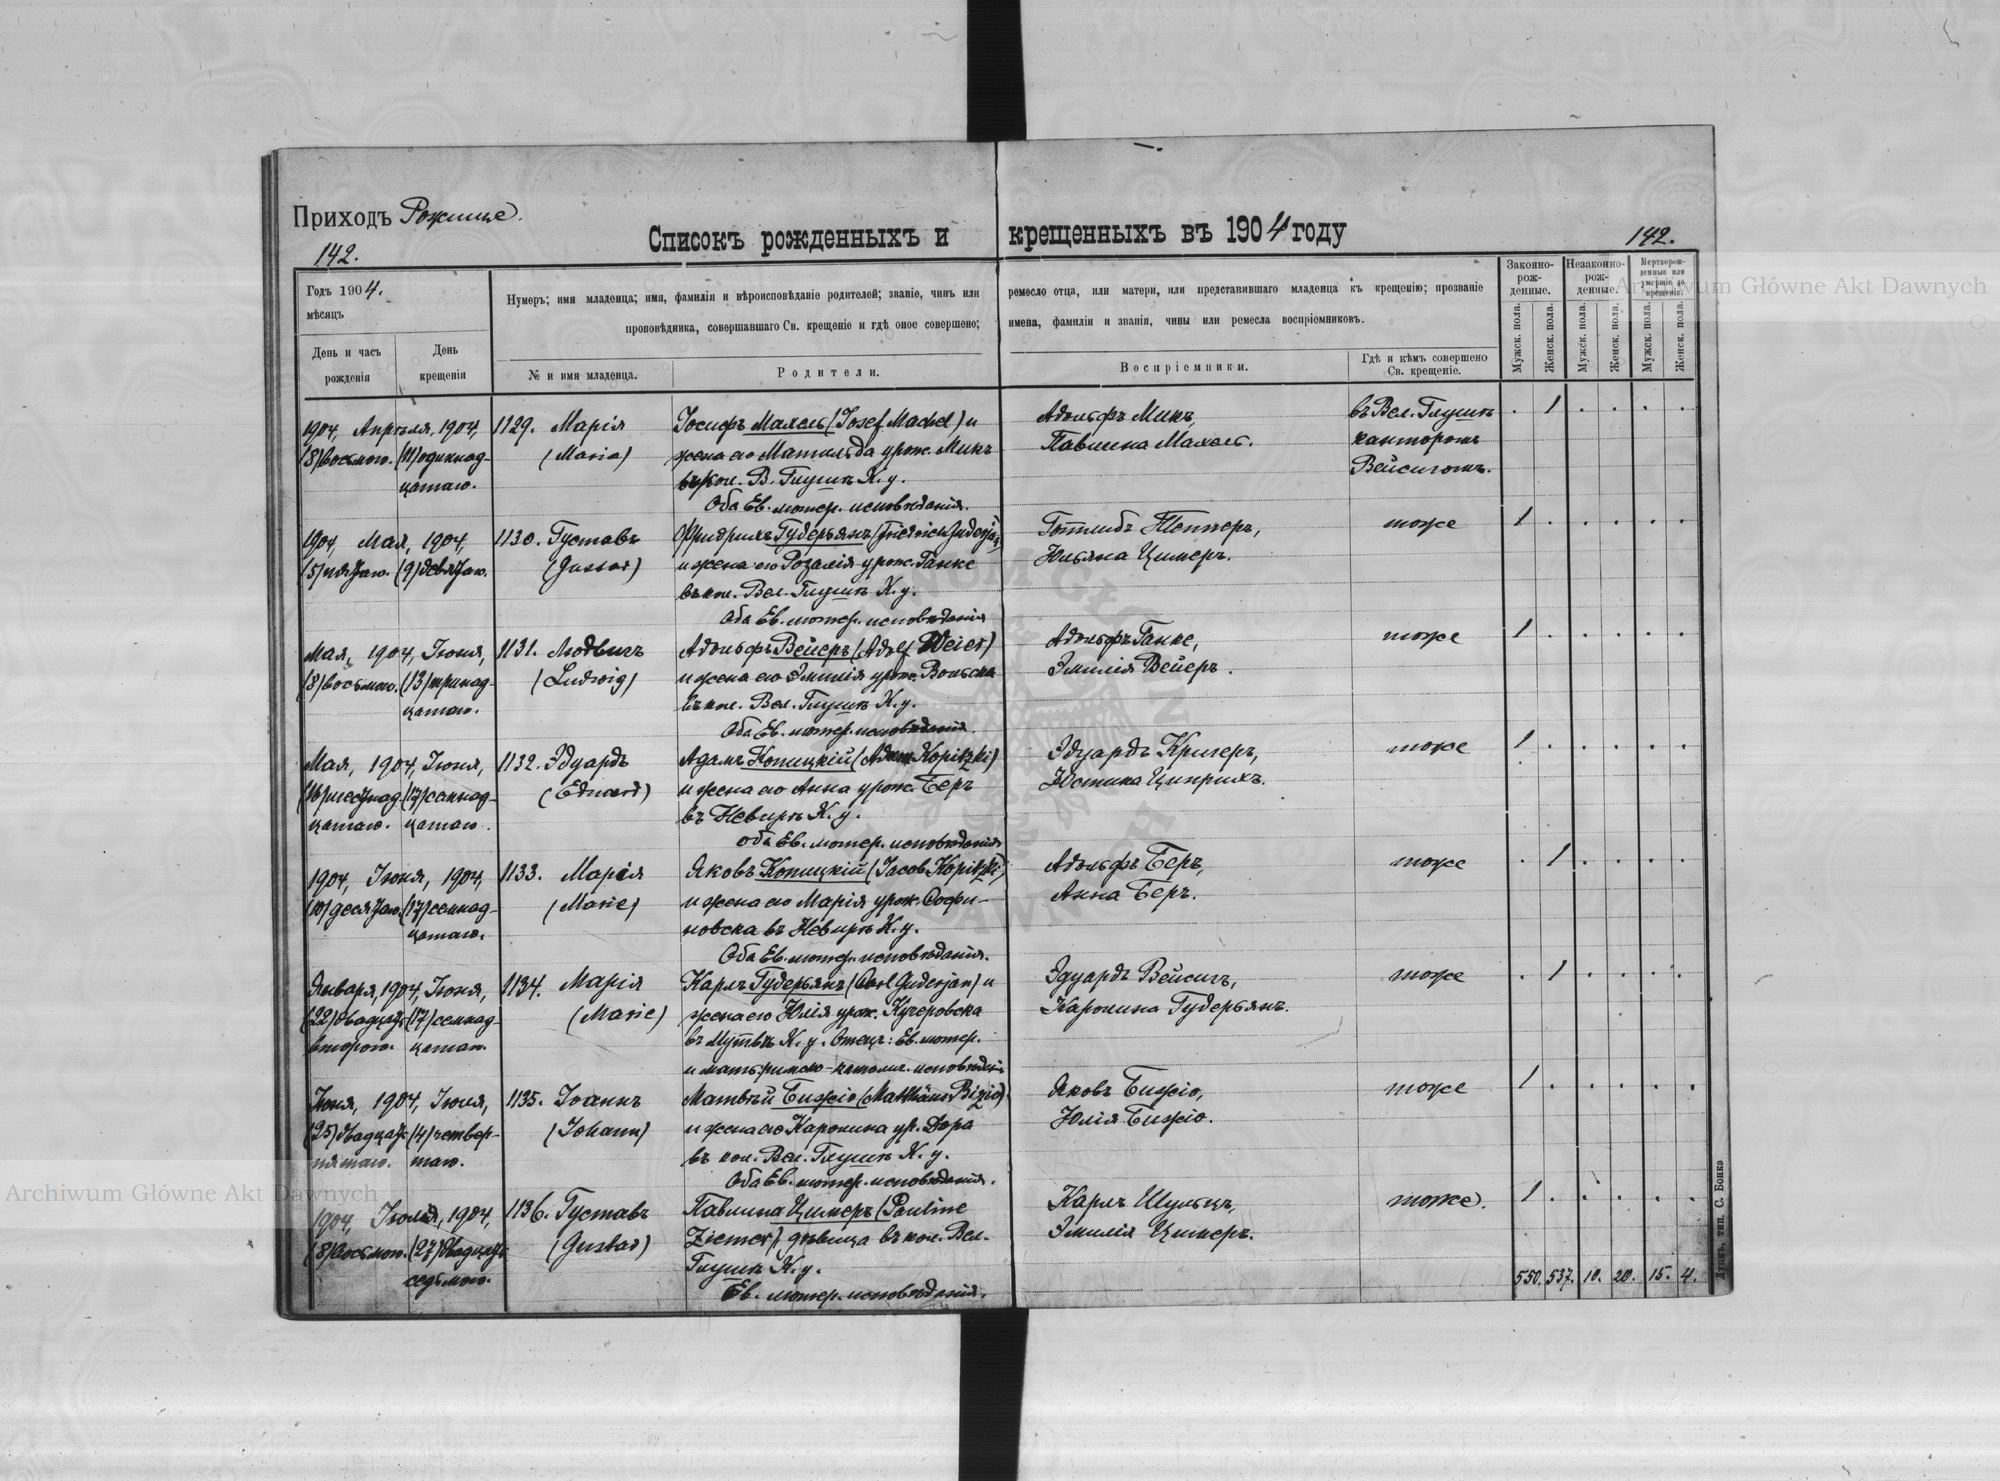 Приходъ Рожище.
142.
Списокъ рожденныхъ и крещенныхъ въ 1904 году
142.
Годъ 1904.
мѣсяцъ
День и часъ рожденія
День крещенія
Нумеръ; имя младенца; имя, фамилія и вѣроисповѣданіе родителей; званіе, чинъ или ремесло отца, или матери, или представившаго младенца къ крещенію; прозваніе
проповѣдника, совершавшаго Св. крещеніе и гдѣ оное совершено; имена, фамиліи и званія, чины или ремесла воспріемниковъ.
№ и имя младенца.
Родители.
Воспріемники.
Гдѣ и кѣмъ совершено
Св. крещеніе.
Законно-
рож-
денные.
Незаконно-
рож-
денные.
Мертворож-
денные или
умершіе до
крещенія.
Мужск. пола.
Женск. пола.
Мужск. пола.
Женск. пола.
Мужск. пола.
Женск. пола.
1904, Апрѣля, 1904, 1129. Марія Іосифъ Махель (Josef Machel) и Адольфъ Микъ, въ Вел. Глушѣ . 1 . . . .
(8) восьмого. (11) одиннад- (Maria) жена его Матильда урож. Микъ Павлина Махель. канторомъ
цатаго. въ кол. В. Глушѣ К. у. Вейсигомъ.
Оба Ев. лютер. исповѣданія.
1904, Мая, 1904, 1130. Густавъ Фридрихъ Гудерьянъ (Friedrich Guderjan) Готлибъ Теппер, тоже 1 . . . . .
(5) пятаго. (9) девятаго. (Gustav) и жена его Розалія урож. Ганке Юльяна Цимеръ.
въ кол. Вел. Глушѣ К. у.
Оба Ев. лютер. исповѣданія
Мая, 1904, Іюня, 1131. Людвигъ Адольфъ Вейеръ (Adolf Weier) Адольфъ Ганке, тоже 1 . . . . .
(8) восьмого. (13) тринад- (Ludwig) и жена его Эмилія урож. Вольска Эмилія Вейеръ.
цатаго. въ кол. Вел. Глушѣ К. у.
Оба Ев. лютер. исповѣданія.
Мая, 1904, Іюня, 1132. Эдуардъ Адамъ Копицкій (Adam Kopitzki) Эдуардъ Кригеръ, тоже 1 . . . . .
(16) шестнад- (17) семнад- (Eduard) и жена его Анна урож. Беръ Юстина Циприхъ.
цатаго. цатаго. въ Невирѣ К. у.
Оба Ев. лютер. исповѣданія
1904, Іюня, 1904, 1133. Марія Яковъ Копицкій (Jacob Kopitzki) Адольфъ Беръ, тоже . 1 . . . .
(10) десятаго. (17) семнад- (Marie) и жена его Марія урож. Софи- Анна Беръ.
цатаго. новска въ Невирѣ К. у.
Оба Ев. лютер. исповѣданія.
Января, 1904, Іюня, 1134. Марія Карлъ Гудерьянъ (Carl Guderjan) и Эдуардъ Вейсигъ, тоже . 1 . . . .
(22) двадцать (17) семнад- (Marie) жена его Юлія урож. Кучеровска Каролина Гудерьянъ.
второго. цатаго. въ К. у. Отецъ: Ев. лютер.
и мать римско-католич. исповѣданія
Іюня, 1904, Іюля, 1135. Іоаннъ Матвѣй Бижіо (Matthäus Bizio) Яковъ Бижіо, тоже 1 . . . . .
(25) двадцать (4) четвер- (Johann) и жена его Каролина ур. Дора Юлія Бижіо.
пятаго. таго. въ кол. Вел. Глушѣ К. у.
Оба Ев. лютер. исповѣданія.
1904, Іюля, 1904, 1136. Густавъ Павлина Цимеръ (Pauline Карлъ Шульцъ, тоже. 1 . . . . .
(8) восьмого. (27) двадцать (Gustav) Ziemer), дѣвица въ кол. Вел. Эмилія Цимеръ.
седьмого. Глушѣ К. у.
Ев. лютер. исповѣданія.
550. 537. 10. 20. 15. 4.
Луцкъ, тип. С. Бонка
Archiwum Główne Akt Dawnych
Archiwum Główne Akt Dawnych